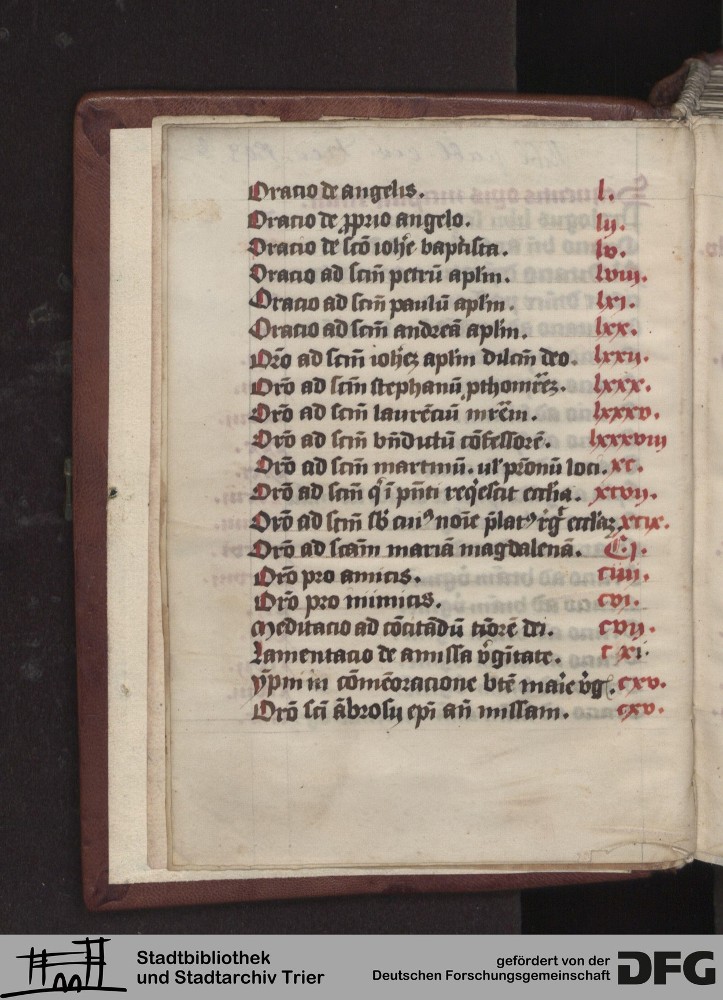 Oracio de angelis. l.
Oracio de ꝓprio angelo. lij.
Oracio de scō ioħe baptista. lv.
Oracio ad scm̄ petrū apl̄m. lviii.
Oracio ad scm̄ paulū apl̄m. lxi.
Oracio ad scm̄ andreā apl̄m. lxx.
Orō ad scm̄ ioħez apl̄m dilcm̄ deo. lxxij.
Orō ad scm̄ stephanū ꝓthom̄rez. lxxx.
Orō ad scm̄ laurēciū mr̄em. lxxxv.
Orō ad scm̄ bn̄dictū cōfessorē. lxxxviij
Orō ad scm̄ martinū. ul' pr̄onū loci. xc.
Orō ad scm̄ q' i pn̄ti req'escit ecclīa. xcvij.
Orō ad scm̄ sb' cui⁹ noīe p̄lat⁹ rg' eccl'az xcix.
Orō ad scām mariā magdalenā. Cj.
Orō pro amicis. ciiii.
Orō pro inimicis. cvi.
Meditacio ad cōcitādū timorē dei. cvij.
Lamentacio de amissa v'gītate. cxi.
ẏpm in cōmēoracione btē marie v'g. cxv.
Orō scī ābrosij epī an̄ missam. cxv.
Stadtbibliothek
und Stadtarchiv Trier
gefördert von der
Deutschen Forschungsgemeinschaft
DFG